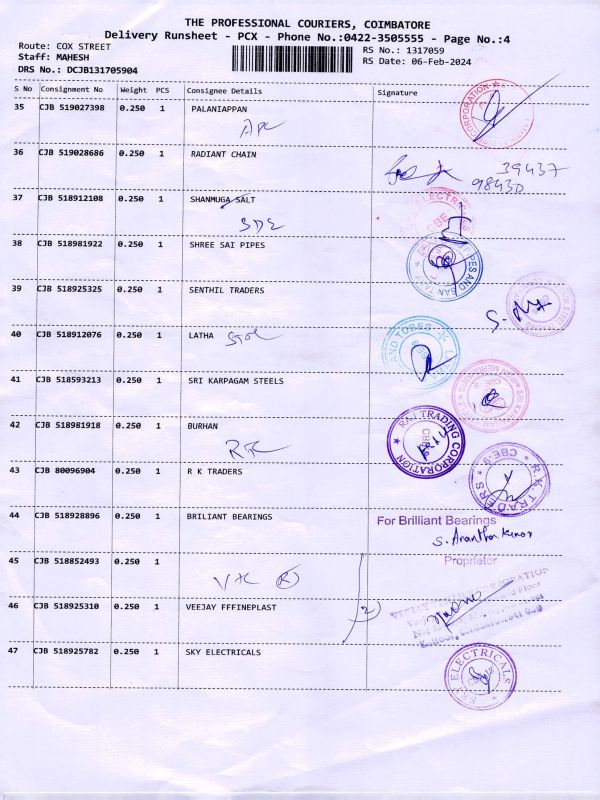 THE PROFESSIONAL COURIERS, COIMBATORE
Delivery Runsheet - PCX - Phone No.:0422-3505555 - Page No.:4
Route: COX STREET
Staff: MAHESH
DRS No.: DCJB131705904
RS No.: 1317059
RS Date: 06-Feb-2024
S No Consignment No Weight PCS Consignee Details Signature
35 CJB 519027398 0.250 1 PALANIAPPAN
36 CJB 519028686 0.250 1 RADIANT CHAIN
39437
98430
37 CJB 518912108 0.250 1 SHANMUGA SALT
38 CJB 518981922 0.250 1 SHREE SAI PIPES
39 CJB 518925325 0.250 1 SENTHIL TRADERS
40 CJB 518912076 0.250 1 LATHA
AND TUBES
41 CJB 518593213 0.250 1 SRI KARPAGAM STEELS
42 CJB 518981918 0.250 1 BURHAN
RAJ TRADING CORPORATION
43 CJB 80096904 0.250 1 R K TRADERS
R.K. TRADERS CBE-9
44 CJB 518928896 0.250 1 BRILIANT BEARINGS
For Brilliant Bearings
S. Ananthakumar
Proprietor
45 CJB 518852493 0.250 1
46 CJB 518925310 0.250 1 VEEJAY FFFINEPLAST
47 CJB 518925782 0.250 1 SKY ELECTRICALS
SKY ELECTRICALS